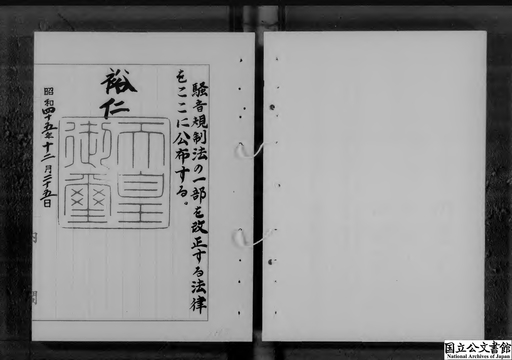 騒音規制法の一部を改正する法律
をここに公布する。
裕仁
天皇
御璽
昭和四十五年十二月二十五日
内閣
国立公文書館
National Archives of Japan